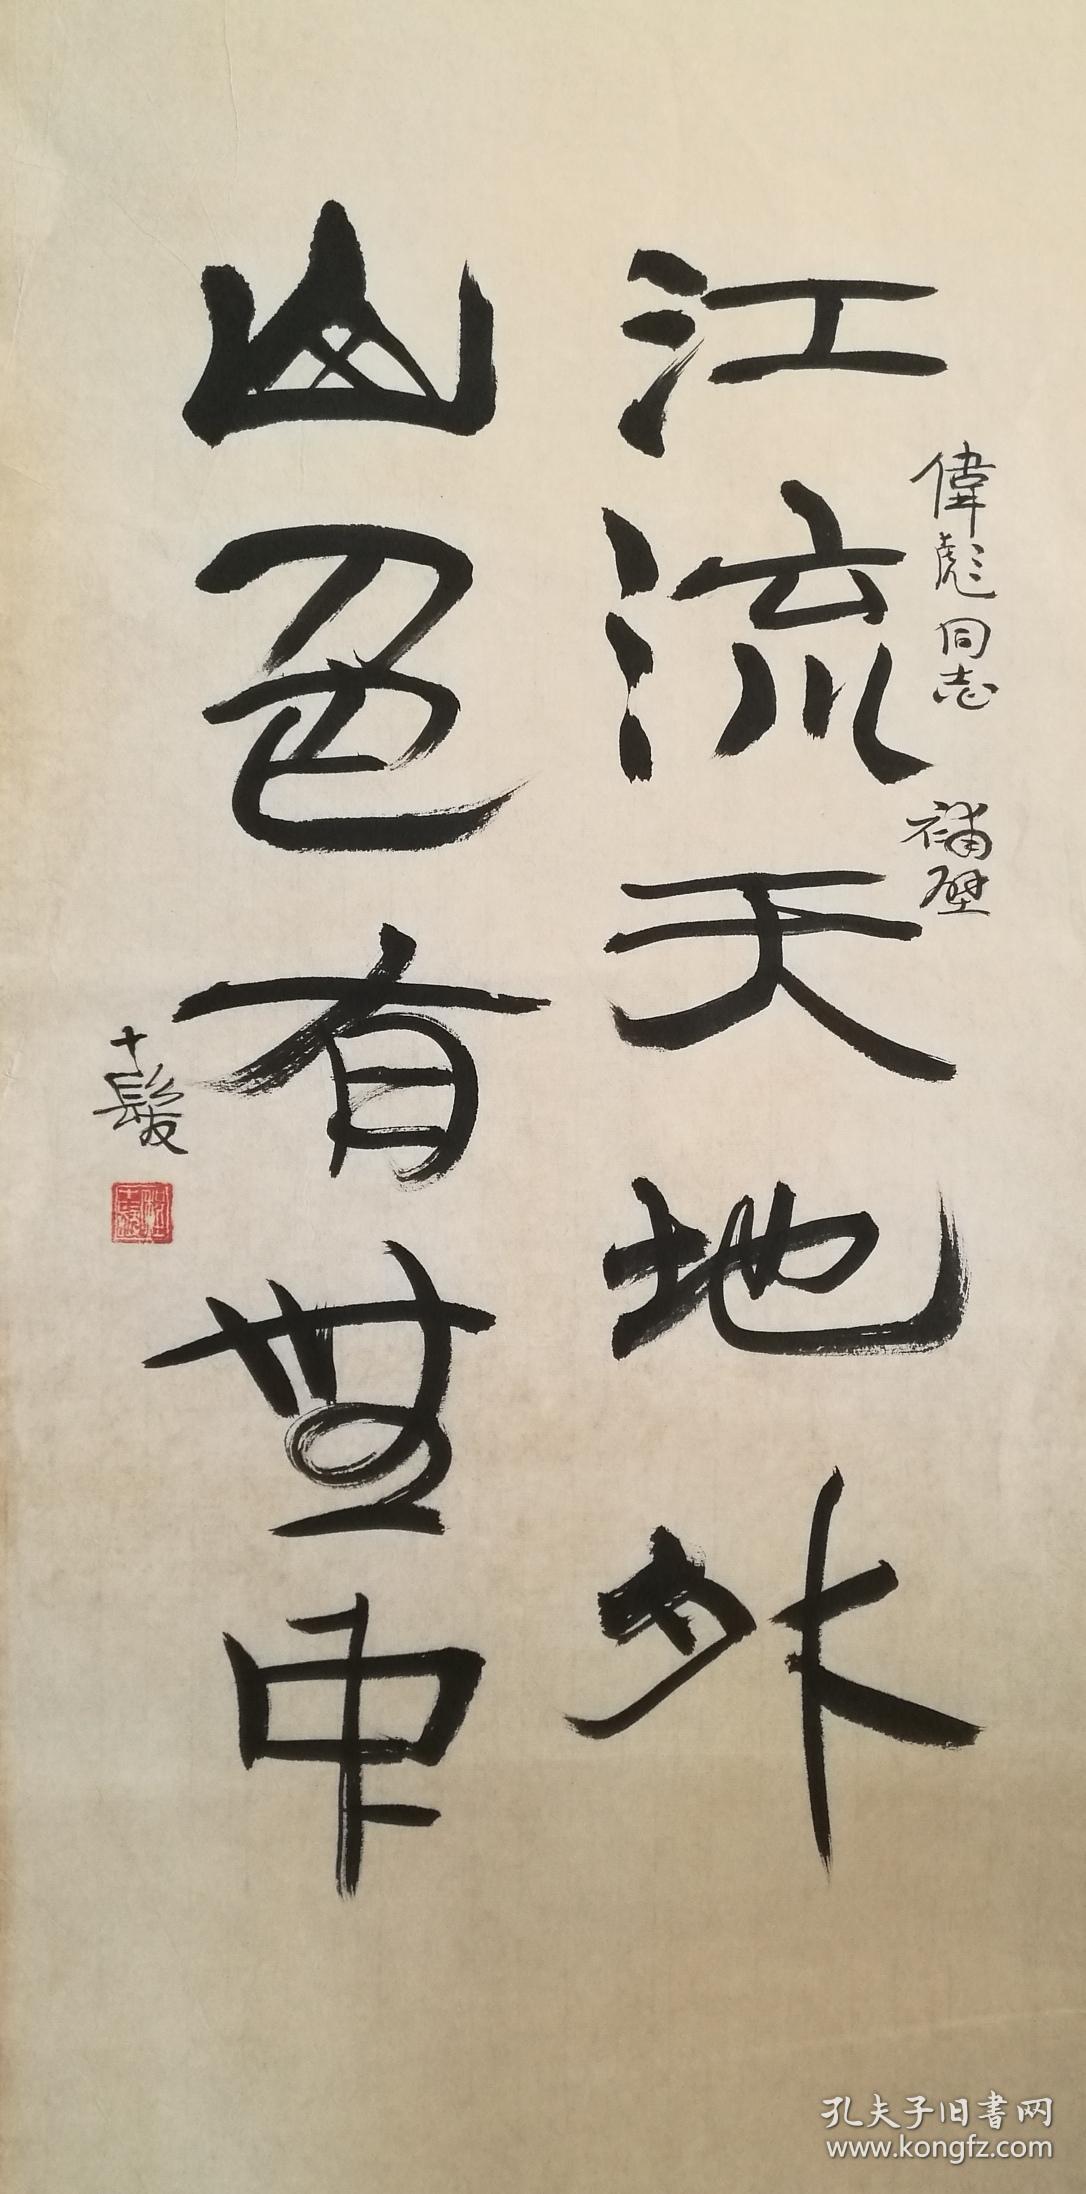 江流天地外
偉彪同志 補壁
山色有無中
十髮
程十髮
孔夫子旧書网
www.kongfz.com